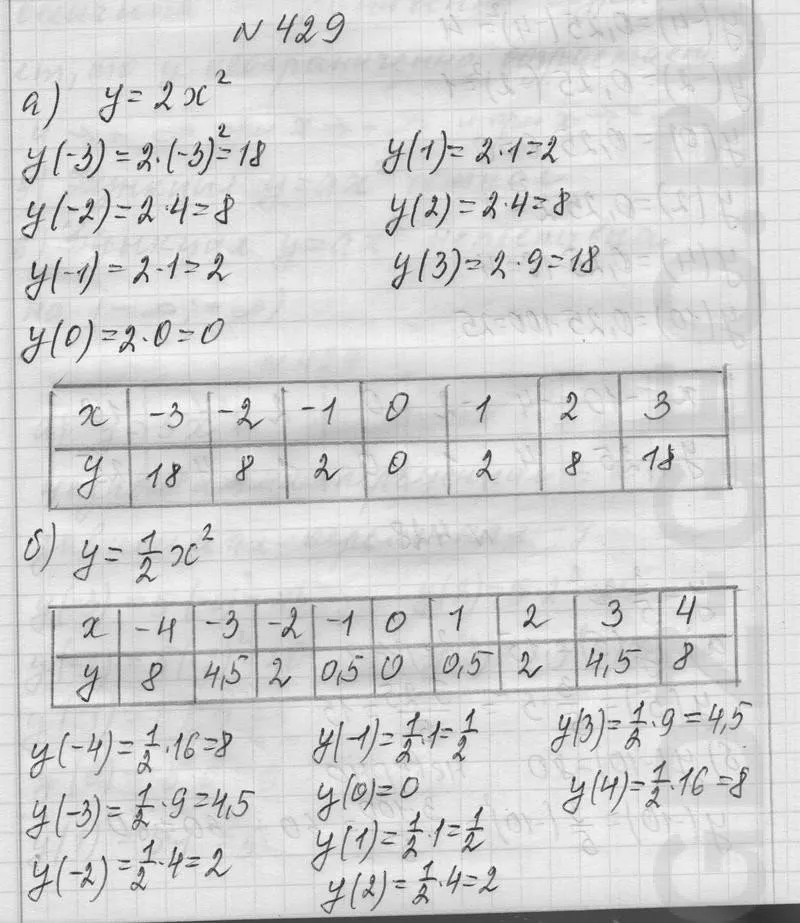 № 429
а) y = 2x²
y(-3) = 2·(-3)² = 18
y(-2) = 2·4 = 8
y(-1) = 2·1 = 2
y(0) = 2·0 = 0
y(1) = 2·1 = 2
y(2) = 2·4 = 8
y(3) = 2·9 = 18
x -3 -2 -1 0 1 2 3
y 18 8 2 0 2 8 18
б) y = 1/2 x²
x -4 -3 -2 -1 0 1 2 3 4
y 8 4,5 2 0,5 0 0,5 2 4,5 8
y(-4) = 1/2·16 = 8
y(-3) = 1/2·9 = 4,5
y(-2) = 1/2·4 = 2
y(-1) = 1/2·1 = 1/2
y(0) = 0
y(1) = 1/2·1 = 1/2
y(2) = 1/2·4 = 2
y(3) = 1/2·9 = 4,5
y(4) = 1/2·16 = 8